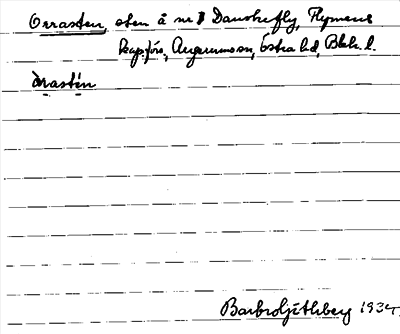 Orrasten, sten å nr 1 Danskefly, Flymens
kapför, Augerums sn, Östra hd, Blek. l.
òrastén
Barbro Göthberg 1934.